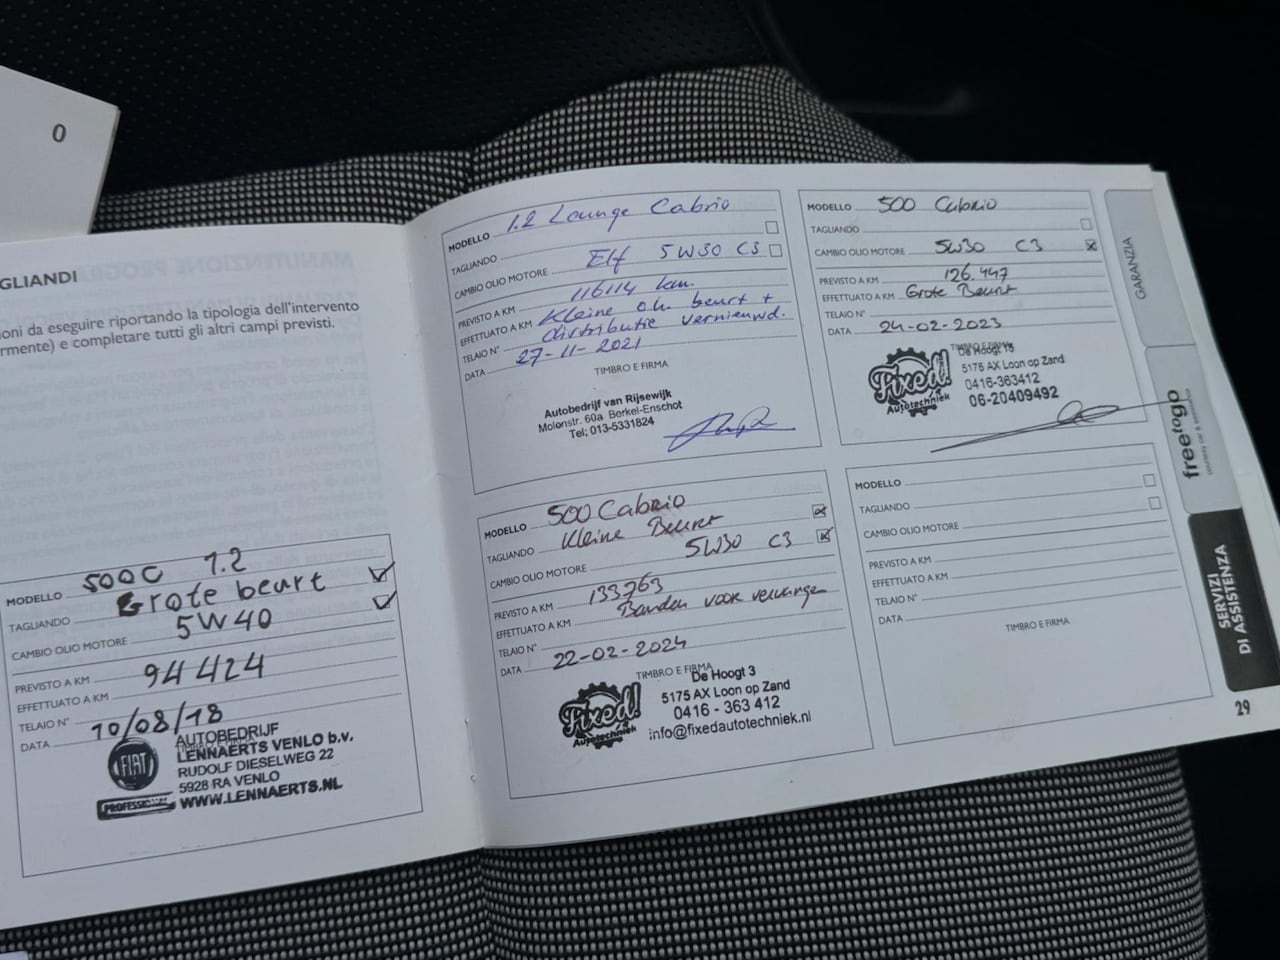 0
GLIANDI
ioni da eseguire riportando la tipologia dell'intervento
rmente) e completare tutti gli altri campi previsti.
MODELLO 500C 1.2
TAGLIANDO Grote beurt
CAMBIO OLIO MOTORE 5W40
PREVISTO A KM 94424
EFFETTUATO A KM
TELAIO N°
DATA 10/08/18
TIMBRO E FIRMA
FIAT
PROFESSIONAL
AUTOBEDRIJF
LENNAERTS VENLO b.v.
RUDOLF DIESELWEG 22
5928 RA VENLO
WWW.LENNAERTS.NL
MODELLO 1.2 Lounge Cabrio
TAGLIANDO
CAMBIO OLIO MOTORE Elf 5W30 C3
PREVISTO A KM 116114 km.
EFFETTUATO A KM Kleine o.h. beurt +
TELAIO N° distributie vernieuwd.
DATA 27-11-2021
TIMBRO E FIRMA
Autobedrijf van Rijsewijk
Molenstr. 60a Berkel-Enschot
Tel; 013-5331824
MODELLO 500 Cabrio
TAGLIANDO Kleine Beurt
CAMBIO OLIO MOTORE 5W30 C3
PREVISTO A KM 133763
EFFETTUATO A KM Banden voor vervangen
TELAIO N°
DATA 22-02-2024
TIMBRO E FIRMA
Fixed!
Autotechniek
De Hoogt 3
5175 AX Loon op Zand
0416 - 363 412
info@fixedautotechniek.nl
MODELLO 500 Cabrio
TAGLIANDO
CAMBIO OLIO MOTORE 5W30 C3
PREVISTO A KM 126.447
EFFETTUATO A KM Grote Beurt
TELAIO N°
DATA 24-02-2023
TIMBRO E FIRMA
Fixed!
Autotechniek
De Hoogt
5175 AX Loon op Zand
0416-363412
06-20409492
MODELLO
TAGLIANDO
CAMBIO OLIO MOTORE
PREVISTO A KM
EFFETTUATO A KM
TELAIO N°
DATA
TIMBRO E FIRMA
GARANZIA
freetogo
SERVIZI
DI ASSISTENZA
29